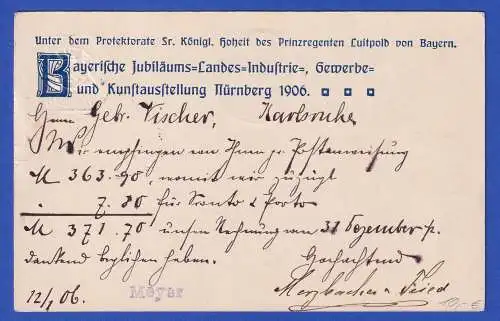 Unter dem Protektorate Sr. Königl. Hoheit des Prinzregenten Luitpold von Bayern.
Bayerische Jubiläums=Landes=Industrie=, Gewerbe=
und Kunstausstellung Nürnberg 1906.
Herrn Gebr. Vischer, Karlsruhe
Wir empfingen von Ihnen pr Postanweisung
M 363.90, womit wir zuzügl
" 7.80 für Sconto & Porto
M 371.70 unsere Rechnung vom 31 Dezember p.
dankend beglichen haben.
Hochachtend
12/1 06. Meyer Merzbacher & Fried
10,- €